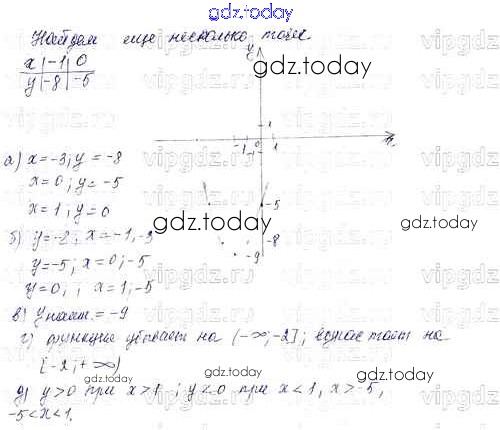 gdz.today
Найдем еще несколько точек.
x | -1 | 0
y | -8 | -5
gdz.today
y
1
-1 0 1
-1
x
а) x = -3; y = -8
x = 0; y = -5
x = 1; y = 0
-5
-8
-9
gdz.today
gdz.today
б) y = -8; x = -1, -3
y = -5; x = 0; -5
y = 0, ; x = 1, -5
в) y наим. = -9
г) функция убывает на (-∞; -2]; возрастает на
[-2; +∞)
gdz.today
gdz.today
д) y > 0 при x > 1 ; y < 0 при x < 1, x > -5,
-5 < x < 1.
vipgdz.ru